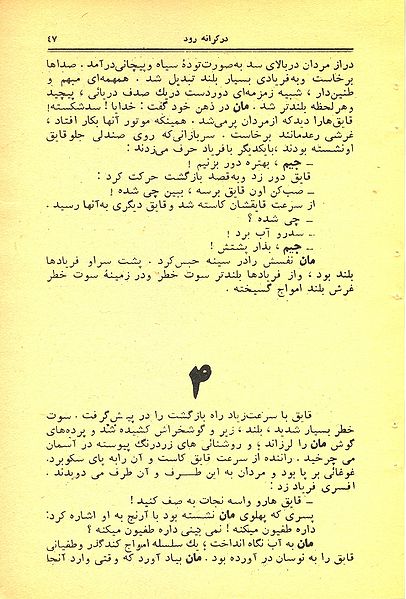 درکرانه رود
٤٧
دراز مردان دربالای سد به‌صورت‌تودهٔ سیاه وپیچانی‌درآمد . صداها
برخاست وبه‌فریادی بسیار بلند تبدیل شد . همهمه‌ای مبهم و
طنین‌دار ، شبیه زمزمه‌ای دوردست دریك صدف دریائی ، پیچید
وهرلحظه بلندتر شد . مان در ذهن خود گفت : خدایا ! سدشکسته!
قایق‌هارا دیدکه ازمردان پرمی‌شد . همینکه موتور آنها بکار افتاد ،
غرشی رعدمانند برخاست . سربازانی‌که روی صندلی جلوقایق
اونشسته بودند ،بایکدیگر بافریاد حرف می‌زدند :
ــ جیم ، بهتره دور بزنیم !
قایق دور زد وبه‌قصد بازگشت حرکت کرد :
ــ صب‌کن اون قایق برسه ، ببین چی شده !
از سرعت قایقشان کاسته شد وقایق دیگری به‌آنها رسید .
ــ چی شده ؟
ــ سدرو آب برد !
ــ جیم ، بذار پشتش !
مان نفسش رادر سینه حبس‌کرد . پشت سراو فریادها
بلند بود ، واز فریادها بلندتر سوت خطر ودر زمینهٔ سوت خطر
غرش بلند امواج گسیخته .
۴
قایق با سرعت‌زیاد راه بازگشت را در پیش‌گرفت . سوت
خطر بسیار شدید ، بلند ، زیر و گوشخراش کشیده شد و پرده‌های
گوش مان را لرزاند ، و روشنائی های زردرنگ پیوسته در آسمان
می چرخید . راننده از سرعت قایق کاست و آن رابه پای سکوبرد.
غوغائی بر پا بود و مردان به این طــرف و آن طرف می دویدند .
افسری فریاد زد :
ــ قایق هارو واسه نجات به صف کنید !
پسری که پهلوی مان نشسته بود با آرنج به او اشاره کرد:
داره طغیون میکنه ! نمی بینی داره طغیون میکنه ؟
مان به آب نگاه انداخت ، یك سلسله امواج کندگذر وطغیانی
قایق را به نوسان در آورده بود . مان بیاد آورد که وقتی وارد آنجا